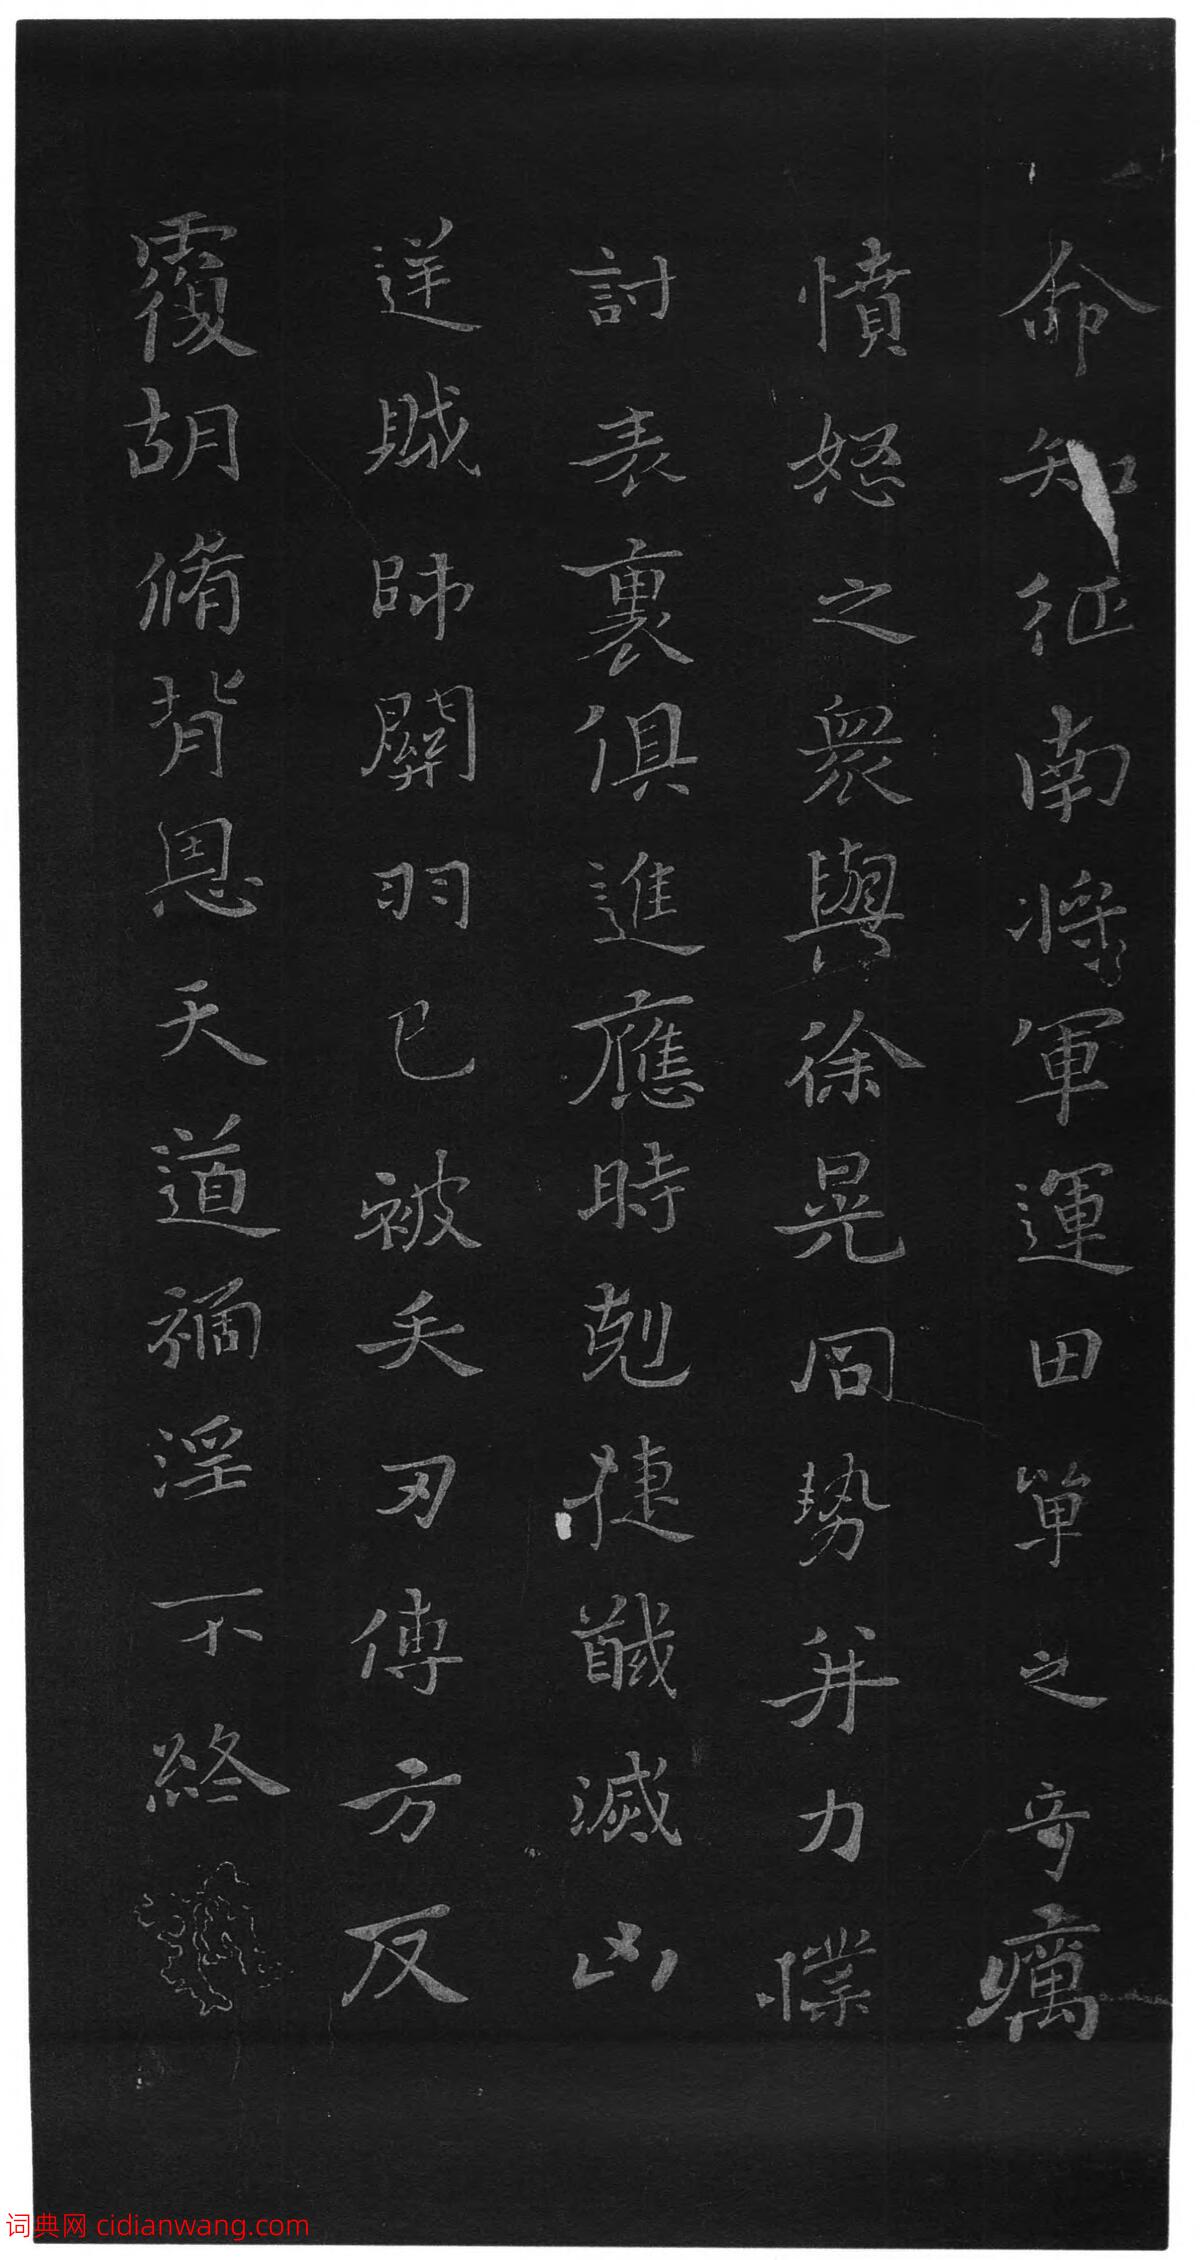 命知征南將軍運田單之奇厲
憤怒之衆與徐晃同勢并力撲
討表裏俱進應時剋捷馘滅凶
逆賊帥關羽已被矢刃傅方反
覆胡脩背恩天道禍淫不終
词典网 cidianwang.com